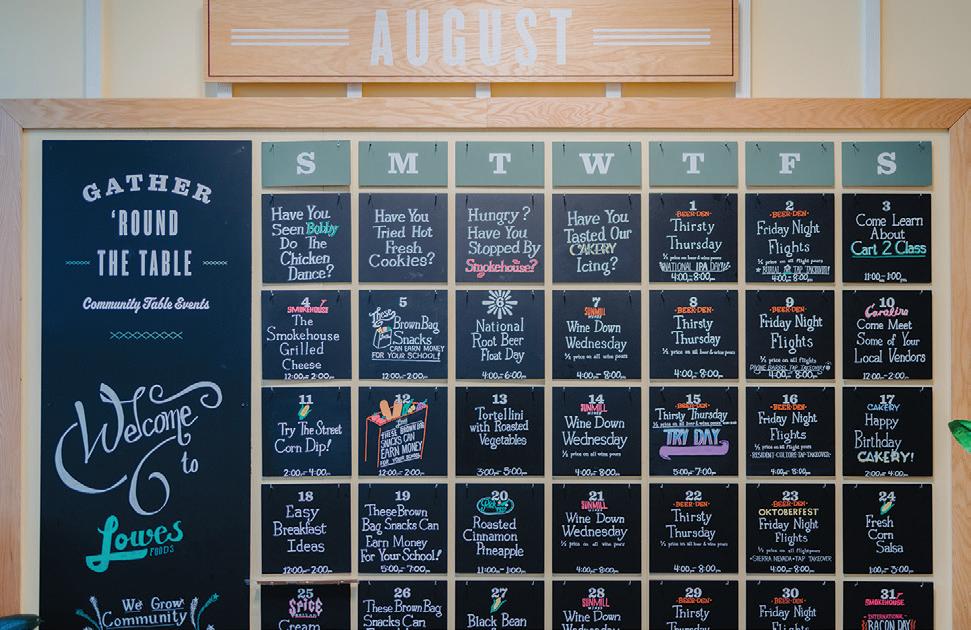 AUGUST
GATHER
'ROUND
THE TABLE
Community Table Events
Welcome
to
Lowes
FOODS
We Grow
Community
S M T W T F S
Have You
Seen Bobby
Do The
Chicken
Dance?
Have You
Tried Hot
Fresh
Cookies?
Hungry?
Have You
Stopped By
Smokehouse?
Have You
Tasted Our
CAKERY
Icing?
1
BEER·DEN
Thirsty
Thursday
NATIONAL IPA DAY!
4:00-8:00pm
2
BEER·DEN
Friday Night
Flights
½ price on all flight pours
BURIAL TAP TAKEOVER!
4:00-8:00pm
3
Come Learn
About
Cart 2 Class
11:00-1:00pm
4
SMOKEHOUSE
The
Smokehouse
Grilled
Cheese
12:00-2:00pm
5
These
Brown Bag
Snacks
CAN EARN MONEY
FOR YOUR SCHOOL!
6
National
Root Beer
Float Day
4:00-6:00pm
7
SUNMILL
WINES
Wine Down
Wednesday
½ price on all wine pours
4:00-8:00pm
8
BEER·DEN
Thirsty
Thursday
½ price on all beer & wine pours
4:00-8:00pm
9
BEER·DEN
Friday Night
Flights
½ price on all flights
TAP TAKEOVER!
4:00-8:00pm
10
Carolina
Come Meet
Some of Your
Local Vendors
12:00-2:00pm
11
Try The Street
Corn Dip!
2:00-4:00pm
12
THESE BROWN BAG
SNACKS CAN
EARN MONEY
FOR YOUR SCHOOL
12:00-2:00pm
13
Tortellini
with Roasted
Vegetables
3:00-5:00pm
14
SUNMILL
WINES
Wine Down
Wednesday
½ price on all wine pours
4:00-8:00pm
15
BEER·DEN
Thirsty Thursday
½ price on all beer & wine pours
TRY DAY
5:00-7:00pm
16
BEER·DEN
Friday Night
Flights
RESIDENT CULTURE TAP TAKEOVER
4:00-8:00pm
17
CAKERY
Happy
Birthday
CAKERY!
2:00-4:00pm
18
Easy
Breakfast
Ideas
12:00-2:00pm
19
These Brown
Bag Snacks Can
Earn Money
For Your School!
5:00-7:00pm
20
Roasted
Cinnamon
Pineapple
11:00-1:00pm
21
SUNMILL
WINES
Wine Down
Wednesday
½ price on all wine pours
4:00-8:00pm
22
BEER·DEN
Thirsty
Thursday
½ price on all beer & wine pours
4:00-8:00pm
23
BEER·DEN
OKTOBERFEST
Friday Night
Flights
½ price on all flight pours
SIERRA NEVADA TAP TAKEOVER
4:00-8:00pm
24
Fresh
Corn
Salsa
1:00-3:00pm
25
SPICE
Cream
26
These Brown Bag
Snacks Can
27
Black Bean
28
SUNMILL
WINES
Wine Down
Wednesday
29
BEER·DEN
Thirsty
Thursday
30
BEER·DEN
Friday Night
Flights
31
SMOKEHOUSE
INTERNATIONAL
BACON DAY